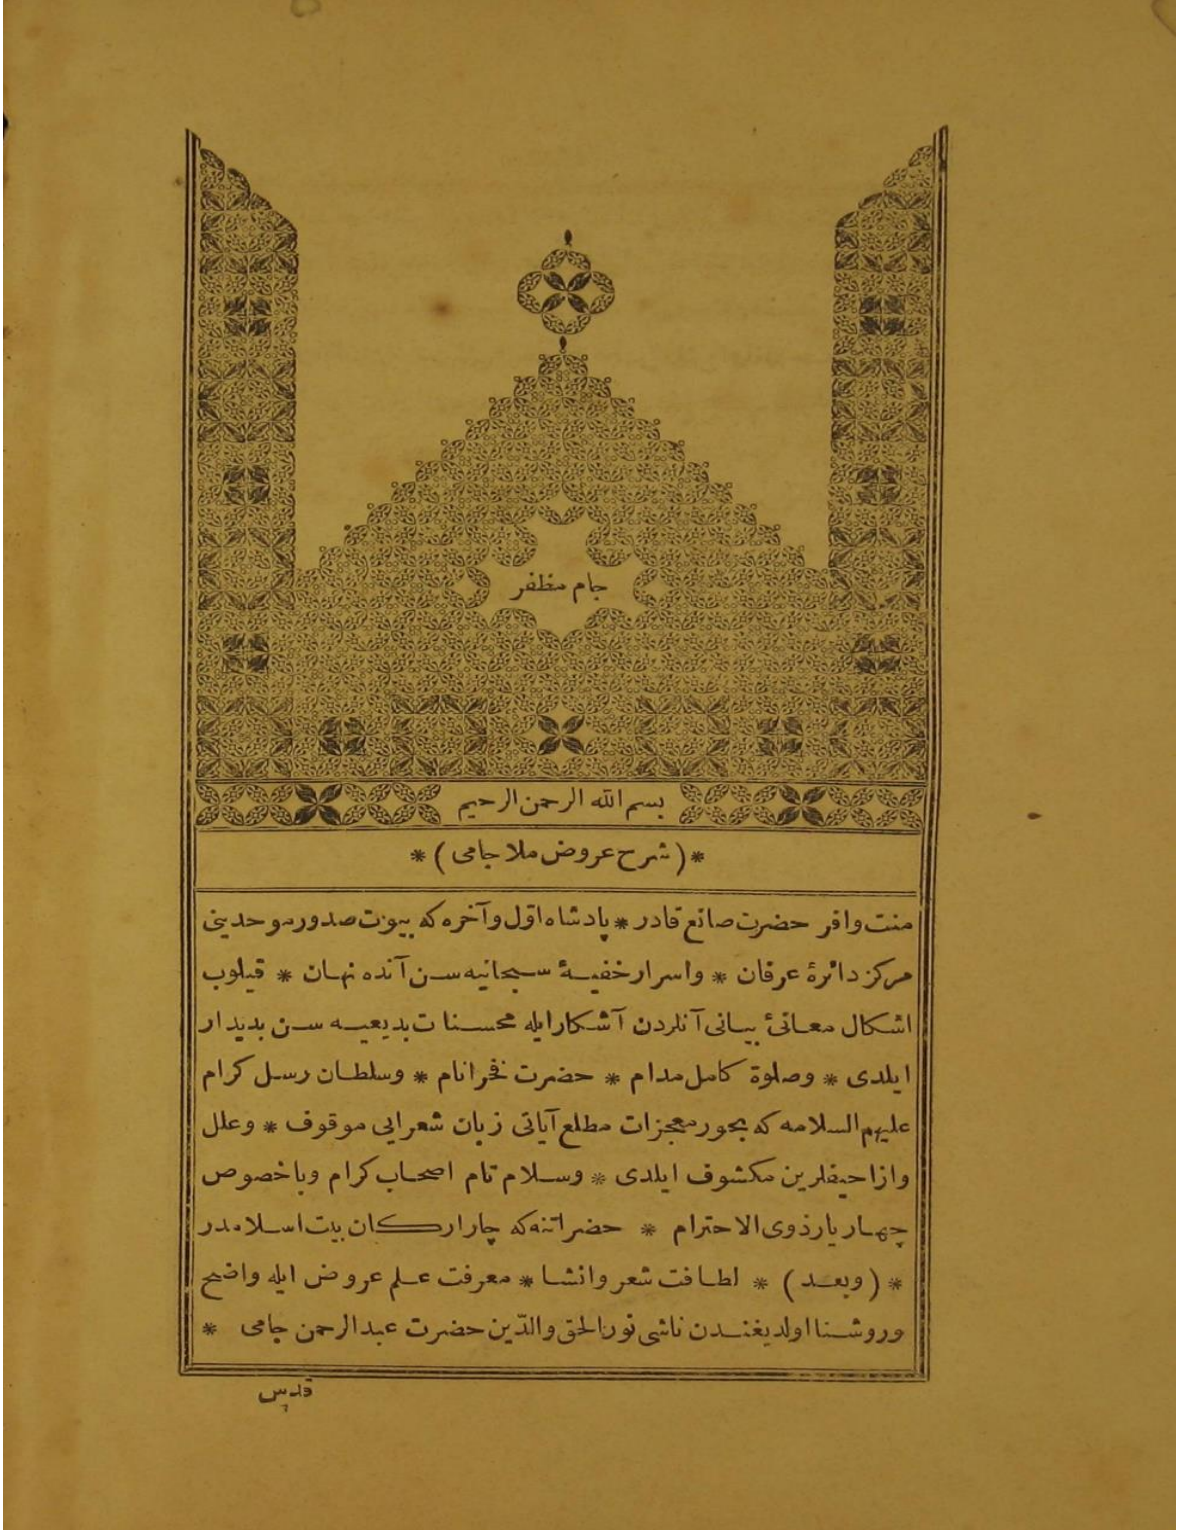 جام مظفر
بسم الله الرحمن الرحيم
* ( شرح عروض ملا جامی ) *
منت وافر حضرت صانع قادر * پادشاه اوّل وآخره که بیوت صدور موحدینی
مرکز دائرۀ عرفان * واسرار خفیۀ سبحانیه سن آنده نهان * قیلوب
اشکال معانیٔ بیانی آنلردن آشکار ایله محسنات بدیعیه سن بدیدار
ایلدی * وصلوة کامل مدام * حضرت فخر انام * وسلطان رسل کرام
علیهم السلامه که بحور معجزات مطلع آیاتی زبان شعرایی موقوف * وعلل
وازاحیفلرین مکشوف ایلدی * وسلام تام اصحاب کرام وباخصوص
چهار یار ذوی الاحترام * حضراتنه که چار ارکان بیت اسلامدر
* ( وبعد ) * لطافت شعر وانشا * معرفت علم عروض ایله واضح
وروشنا اولدیغندن ناشی نور الحق والدّین حضرت عبد الرحمن جامی *
قدس